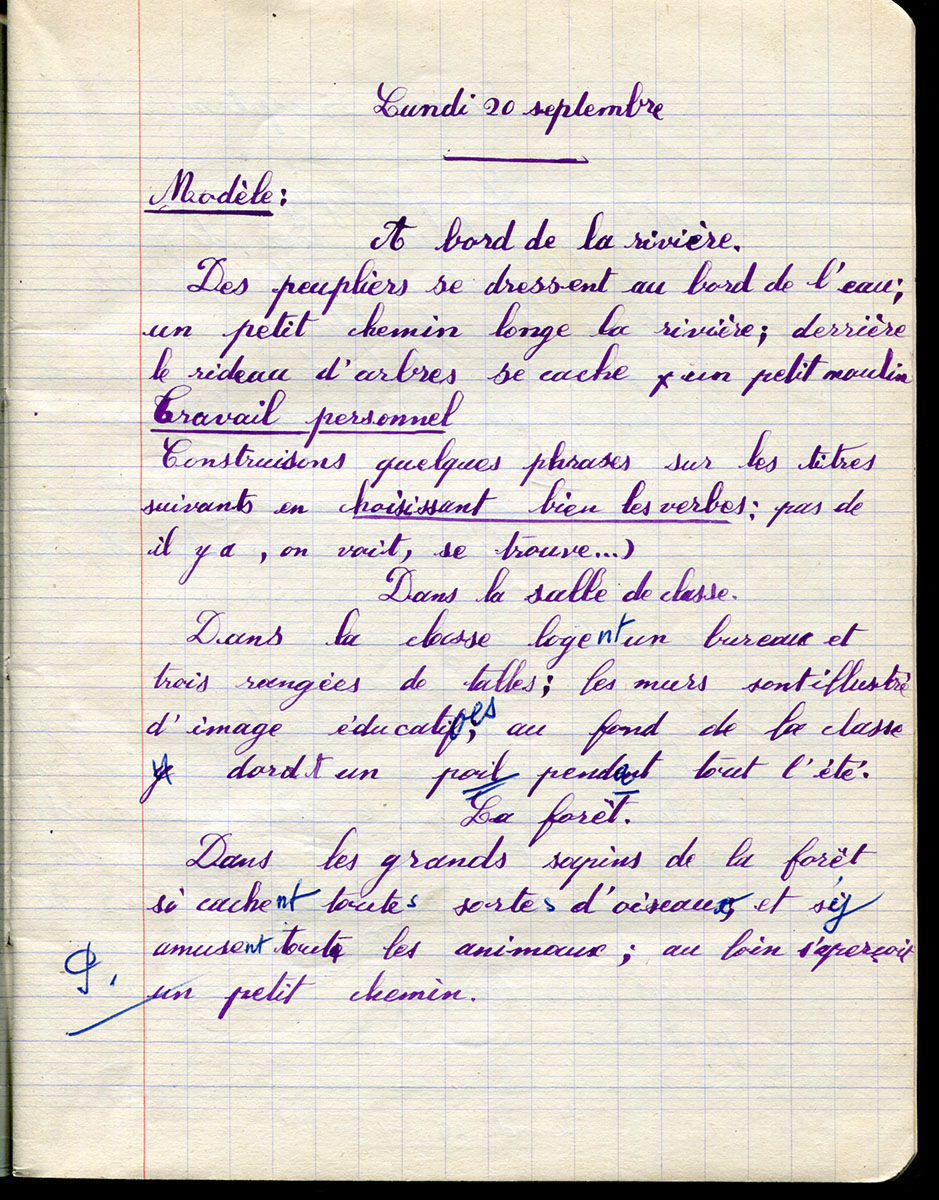 Lundi 20 septembre
Modèle:
A bord de la rivière.
Des peupliers se dressent au bord de l'eau;
un petit chemin longe la rivière; derrière
le rideau d'arbres se cache un petit moulin
Travail personnel
Construisons quelques phrases sur les titres
suivants en choisissant bien les verbes; pas de
il y a, on voit, se trouve...)
Dans la salle de classe.
Dans la classe logent un bureau et
trois rangées de tables; les murs sont illustré
d'image éducatives; au fond de la classe
y dort un poil pendant tout l'été.
La forêt.
Dans les grands sapins de la forêt
si cachent toutes sortes d'oiseaux, et s'y
amusent toute les animaux; au loin s'aperçoit
un petit chemin.